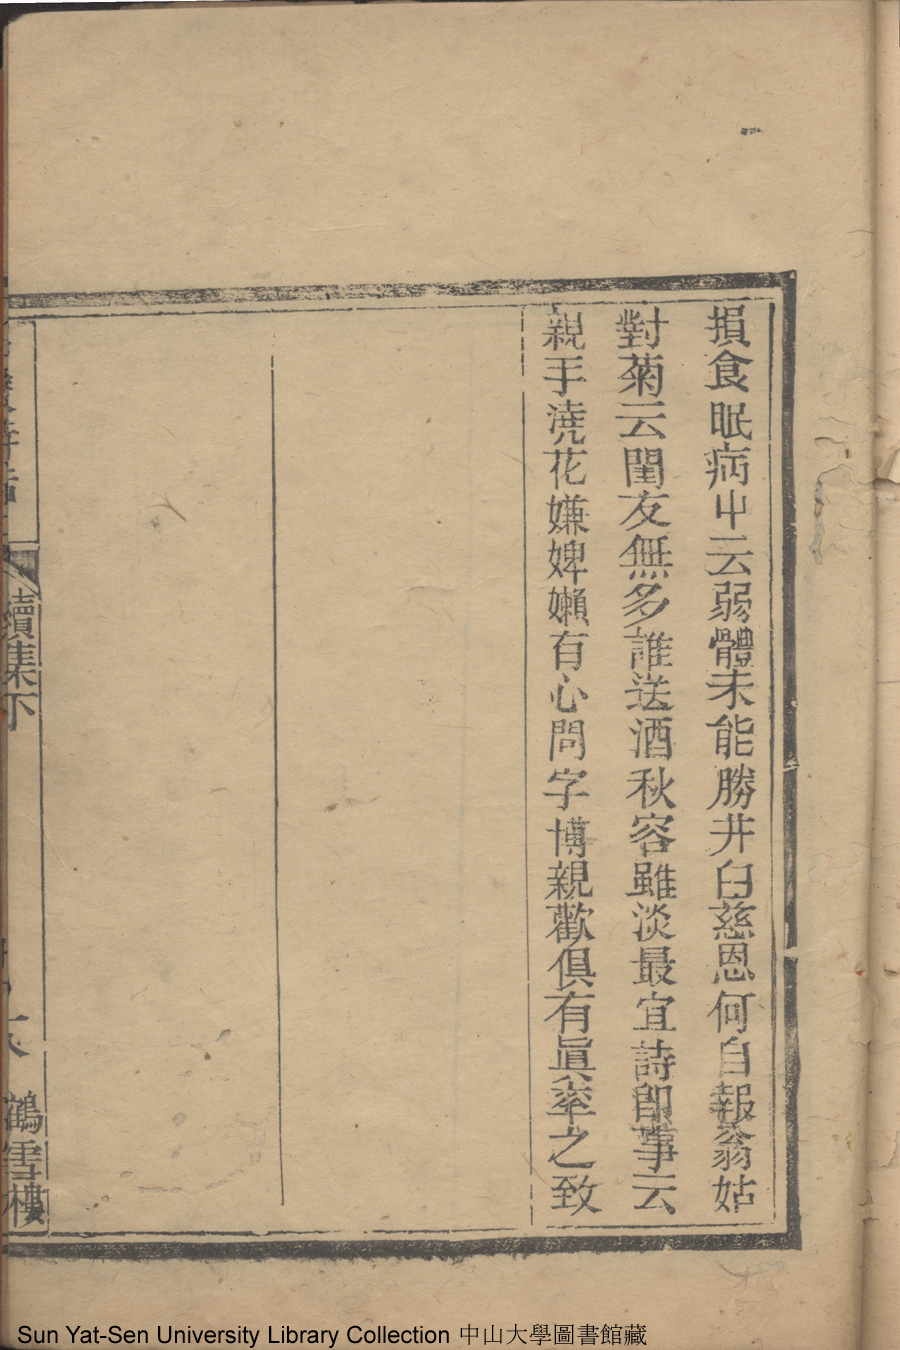 損食眠病中云弱體未能勝井臼慈恩何自報翁姑
對菊云閨友無多誰送酒秋容雖淡最宜詩即事云
親手澆花嫌婢懶有心問字博親歡俱有眞率之致
續集下
鶴雪樓
Sun Yat-Sen University Library Collection 中山大學圖書館藏